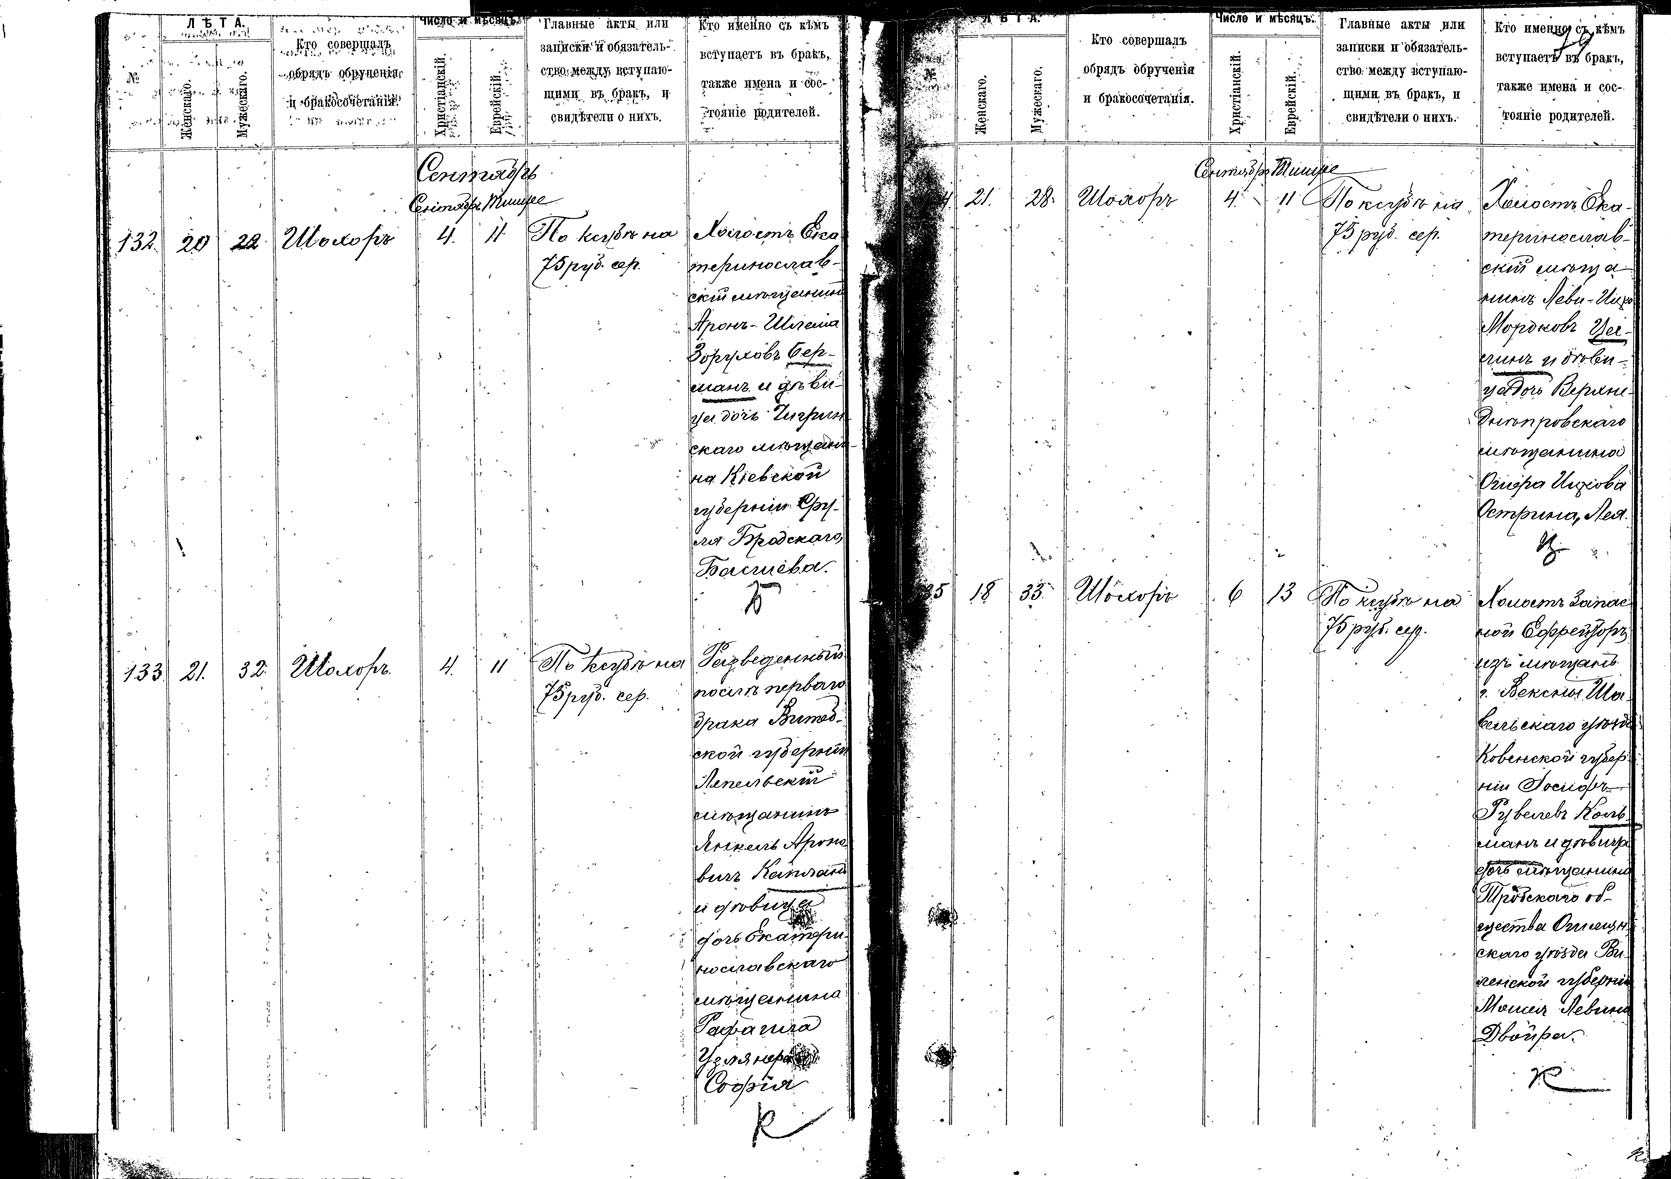 №
ЛѢТА.
Женскаго.
Мужескаго.
Кто совершалъ
обрядъ обрученія
и бракосочетанія.
Число и мѣсяцъ.
Христіанскій.
Еврейскій.
Главные акты или
записки и обязатель-
ство между вступаю-
щими въ бракъ, и
свидѣтели о нихъ.
Кто именно съ кѣмъ
вступаетъ въ бракъ,
также имена и сос-
тояніе родителей.
Сентябрь
Сентябрь Тишре
132. 20 22 Шохоръ 4. 11 По ксубѣ на
75 руб. сер.
Холостъ Ека-
теринослав-
скій мѣщанинъ
Аронъ-Шлема
Зоруховъ Бер-
манъ и дѣви-
ца дочь Чигрин-
скаго мѣщани-
на Кіевской
губерніи Сру-
ля Бродскаго,
Басшева.
Б
133 21. 32. Шохоръ. 4. 11 По ксубѣ на
75 руб. сер.
Разведенный
послѣ перваго
брака Витеб-
ской губерніи
Лепельскій
мѣщанинъ
Янкель Ароно-
вичъ Капланъ
и дѣвица
дочь Екатери-
нославскаго
мѣщанина
Рафаила
София
К
№
ЛѢТА.
Женскаго.
Мужескаго.
Кто совершалъ
обрядъ обрученія
и бракосочетанія.
Число и мѣсяцъ.
Христіанскій.
Еврейскій.
Главные акты или
записки и обязатель-
ство между вступаю-
щими въ бракъ, и
свидѣтели о нихъ.
Кто именно съ кѣмъ
вступаетъ въ бракъ,
также имена и сос-
тояніе родителей.
79
Сентябрь Тишре
4 21. 28. Шохоръ 4. 11 По ксубѣ на
75 руб. сер.
Холостъ Ека-
теринослав-
скій мѣща-
нинъ Леви-Ицко
Мордковъ Цей-
тлинъ и дѣви-
ца дочь Верхне-
днѣпровскаго
мѣщанина
Ицкова
Острина, Лея.
Ц
35 18 33. Шохоръ 6 13 По ксубѣ на
75 руб. сер.
Холостъ Запас-
ной Ефрейторъ
изъ мѣщанъ
г. Вексны Ша-
вельскаго уѣзда
Ковенской губер-
ніи Іосифъ
Рувелевъ Коль-
манъ и дѣвица
дочь мѣщанина
Трабскаго об-
щества Ошмян-
скаго уѣзда Ви-
ленской губерніи
Левина
Двойра.
К